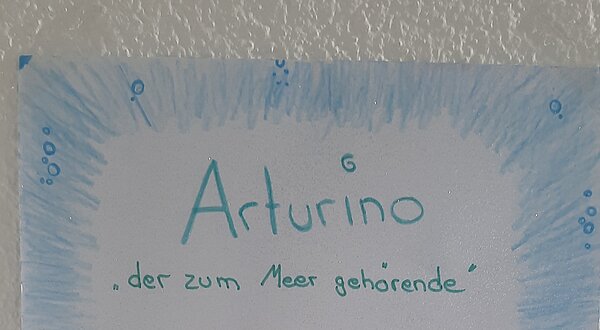 Arturino
„der zum Meer gehörende“